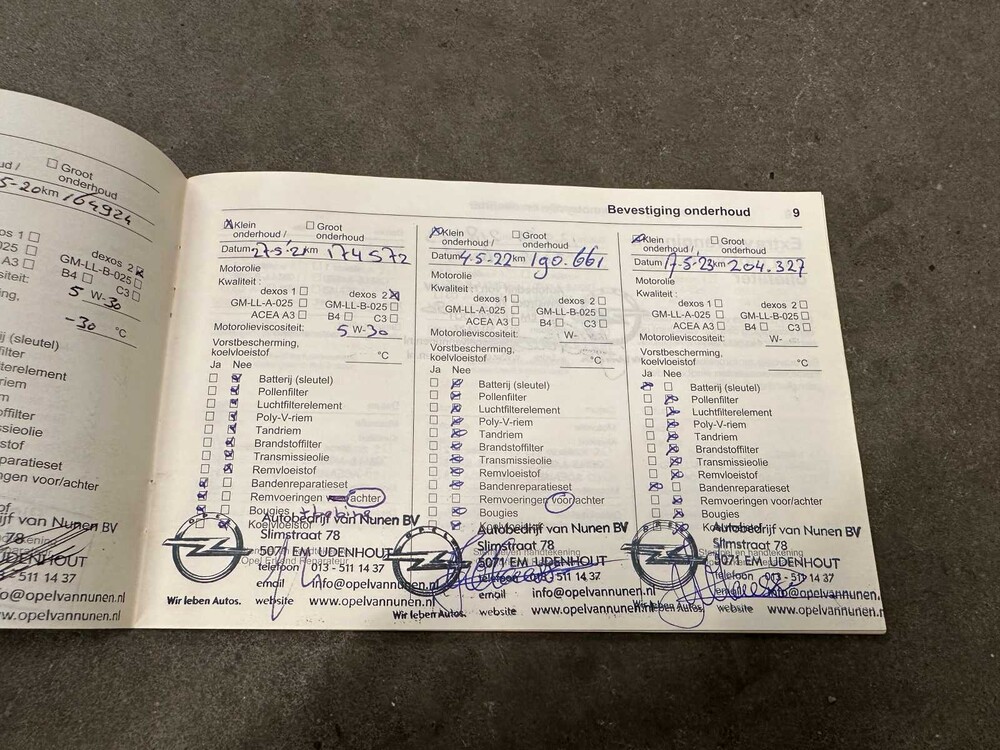 ud /
☐ Groot
onderhoud
5-20 km 164924
os 1 ☐
dexos 2 ☒
025 ☐
GM-LL-B-025 ☐
A3 ☐
B4 ☐
C3 ☐
siteit:
5 W-30
ng,
-30 °C
ij (sleutel)
filter
terelement
riem
m
offilter
issieolie
stof
paratieset
ngen voor/achter
stof
jf van Nunen BV
78
UDENHOUT
- 511 14 37
o@opelvannunen.nl
v.opelvannunen.nl
Bevestiging onderhoud 9
☒ Klein onderhoud / ☐ Groot onderhoud
Datum 27-5-21 km 174572
Motorolie
Kwaliteit :
dexos 1 ☐ dexos 2 ☒
GM-LL-A-025 ☐ GM-LL-B-025 ☐
ACEA A3 ☐ B4 ☐ C3 ☐
Motorolieviscositeit: 5 W-30
Vorstbescherming,
koelvloeistof °C
Ja Nee
☐ ☒ Batterij (sleutel)
☐ ☒ Pollenfilter
☐ ☒ Luchtfilterelement
☐ ☒ Poly-V-riem
☐ ☒ Tandriem
☐ ☒ Brandstoffilter
☐ ☒ Transmissieolie
☐ ☒ Remvloeistof
☒ ☐ Bandenreparatieset
☒ ☐ Remvoeringen voor/achter
Bougies
Koelvloeistof
OPEL
Autobedrijf van Nunen BV
Slimstraat 78
5071 EM UDENHOUT
Opel Erkend Reparateur
telefoon 013 - 511 14 37
email info@opelvannunen.nl
Wir leben Autos. website www.opelvannunen.nl
☒ Klein onderhoud / ☐ Groot onderhoud
Datum 4-5-22 km 190.661
Motorolie
Kwaliteit :
dexos 1 ☐ dexos 2 ☐
GM-LL-A-025 ☐ GM-LL-B-025 ☐
ACEA A3 ☐ B4 ☐ C3 ☐
Motorolieviscositeit: W-
Vorstbescherming,
koelvloeistof °C
Ja Nee
☐ ☒ Batterij (sleutel)
☐ ☒ Pollenfilter
☐ ☒ Luchtfilterelement
☐ ☒ Poly-V-riem
☐ ☒ Tandriem
☐ ☒ Brandstoffilter
☐ ☒ Transmissieolie
☐ ☒ Remvloeistof
☐ ☒ Bandenreparatieset
☐ ☐ Remvoeringen voor/achter
☐ ☒ Bougies
Koelvloeistof
OPEL
Autobedrijf van Nunen BV
Slimstraat 78
Stempel en handtekening
5071 EM UDENHOUT
telefoon 013 - 511 14 37
email info@opelvannunen.nl
Wir leben Autos. website www.opelvannunen.nl
☒ Klein onderhoud / ☐ Groot onderhoud
Datum 17-5-23 km 204.327
Motorolie
Kwaliteit :
dexos 1 ☐ dexos 2 ☐
GM-LL-A-025 ☐ GM-LL-B-025 ☐
ACEA A3 ☐ B4 ☐ C3 ☐
Motorolieviscositeit: W-
Vorstbescherming,
koelvloeistof °C
Ja Nee
☒ ☐ Batterij (sleutel)
☐ ☒ Pollenfilter
☐ ☒ Luchtfilterelement
☐ ☒ Poly-V-riem
☐ ☒ Tandriem
☐ ☒ Brandstoffilter
☐ ☒ Transmissieolie
☐ ☒ Remvloeistof
☒ ☐ Bandenreparatieset
☐ ☒ Remvoeringen voor/achter
☐ ☒ Bougies
Koelvloeistof
OPEL
Autobedrijf van Nunen BV
Slimstraat 78
Stempel en handtekening
5071 EM UDENHOUT
telefoon 013 - 511 14 37
email info@opelvannunen.nl
Wir leben Autos. website www.opelvannunen.nl